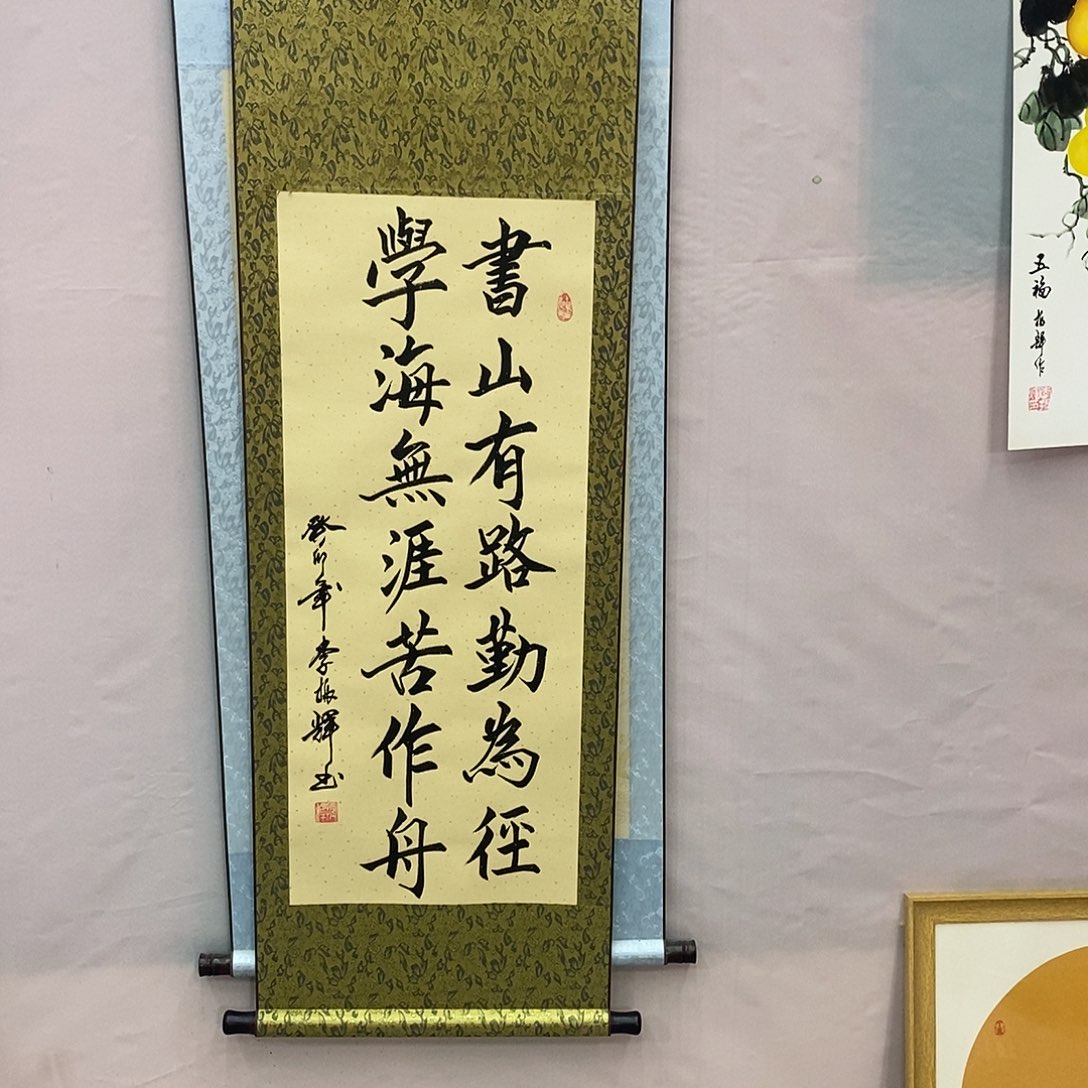 書山有路勤為徑
學海無涯苦作舟
癸卯年 李振輝书
五福 振輝作